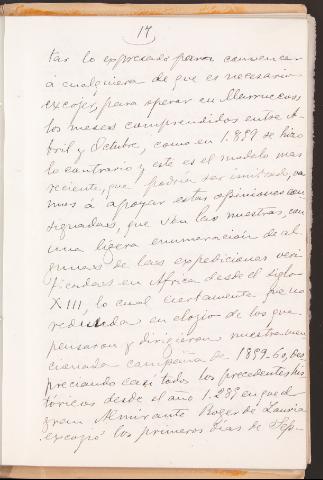 17
tar lo expresado para convencer
á cualquiera de que es necesario
excojer, para operar en Marruecos
los meses comprendidos entre A-
bril y Octubre, como en 1.859 se hizo
lo contrario y este es el modelo mas
reciente, que podria ser imitado, va-
mos á apoyar estas opiniones con-
signadas, que son las nuestras, con
una ligera enumeración de al-
gunas de las expediciones veri-
ficadas en Africa desde el siglo
XIII, lo cual ciertamente que no
redunda en elogio de los que
pensaron y dirigieron nuestra men-
cionada campaña de 1859-60, des-
preciando casi todos los precedentes his-
tóricos desde el año 1.289 en que el
gran Almirante Roger de Lauria
excojió los primeros dias de Sep-